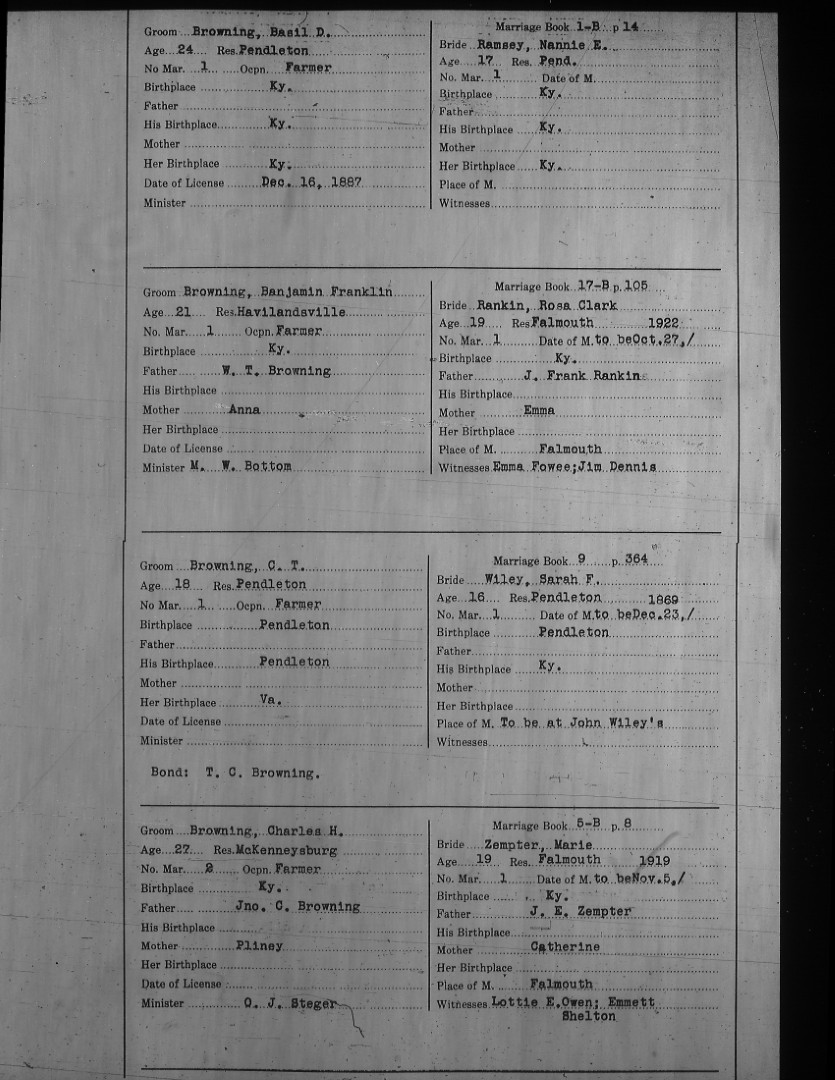 Groom Browning, Basil D.
Age 24 Res. Pendleton
No Mar. 1 Ocpn. Farmer
Birthplace Ky.
Father
His Birthplace Ky.
Mother
Her Birthplace Ky.
Date of License Dec. 16, 1887
Minister
Marriage Book 1-B p 14
Bride Ramsey, Nannie E.
Age 17 Res. Pend.
No. Mar. 1 Date of M.
Birthplace Ky.
Father
His Birthplace Ky.
Mother
Her Birthplace Ky.
Place of M.
Witnesses
Groom Browning, Banjamin Franklin
Age 21 Res. Havilandsville
No. Mar. 1 Ocpn. Farmer
Birthplace Ky.
Father W. T. Browning
His Birthplace
Mother Anna
Her Birthplace
Date of License
Minister M. W. Bottom
Marriage Book 17-B p. 105
Bride Rankin, Rosa Clark
Age 19 Res Falmouth 1922
No. Mar. 1 Date of M. to be Oct. 27, /
Birthplace Ky.
Father J. Frank Rankin
His Birthplace
Mother Emma
Her Birthplace
Place of M. Falmouth
Witnesses Emma Fowee; Jim Dennis
Groom Browning, C. T.
Age 18 Res. Pendleton
No Mar. 1 Ocpn. Farmer
Birthplace Pendleton
Father
His Birthplace Pendleton
Mother
Her Birthplace Va.
Date of License
Minister
Bond: T. C. Browning.
Marriage Book 9 p. 364
Bride Wiley, Sarah F.
Age 16 Res. Pendleton 1869
No. Mar. 1 Date of M. to be Dec. 23, /
Birthplace Pendleton
Father
His Birthplace Ky.
Mother
Her Birthplace
Place of M. To be at John Wiley's
Witnesses
Groom Browning, Charles H.
Age 27 Res. McKenneysburg
No. Mar. 2 Ocpn. Farmer
Birthplace Ky.
Father Jno. C. Browning
His Birthplace
Mother Pliney
Her Birthplace
Date of License
Minister O. J. Steger
Marriage Book 5-B p. 8
Bride Zempter, Marie
Age 19 Res. Falmouth 1919
No. Mar. 1 Date of M. to be Nov. 5, /
Birthplace Ky.
Father J. E. Zempter
His Birthplace
Mother Catherine
Her Birthplace
Place of M. Falmouth
Witnesses Lottie E. Owen; Emmett
Shelton